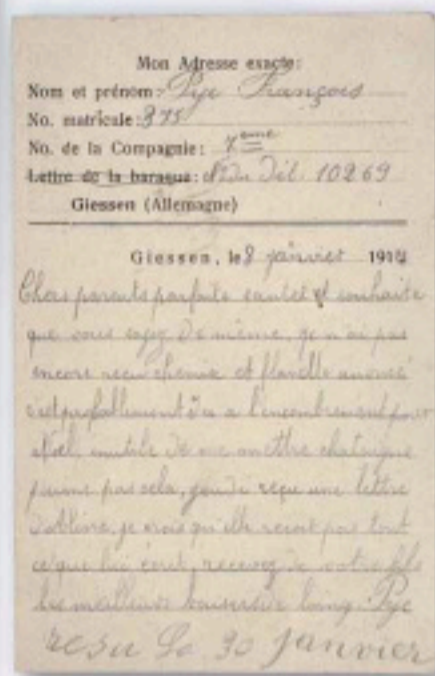 Mon Adresse exacte:
Nom et prénom: Pye François
No. matricule: 375
No. de la Compagnie: 7eme
Lettre de la baraque: No du Dét. 10269
Giessen (Allemagne)
Giessen, le 8 janvier 191
Chers parents parfaite santée et souhaite
que vous soyez de même, je n'ai pas
encore reçu chemise et flanelle annoncé
c'est probablement du a l'encombrement pour
Noël, inutile de me mettre
j'aime pas cela, jeudi reçu une lettre
je crois qu'elle recoit pas tout
ce que lui écrit, recevez de votre fils
les meilleurs baisers de loing. Pye
resu le 30 janvier